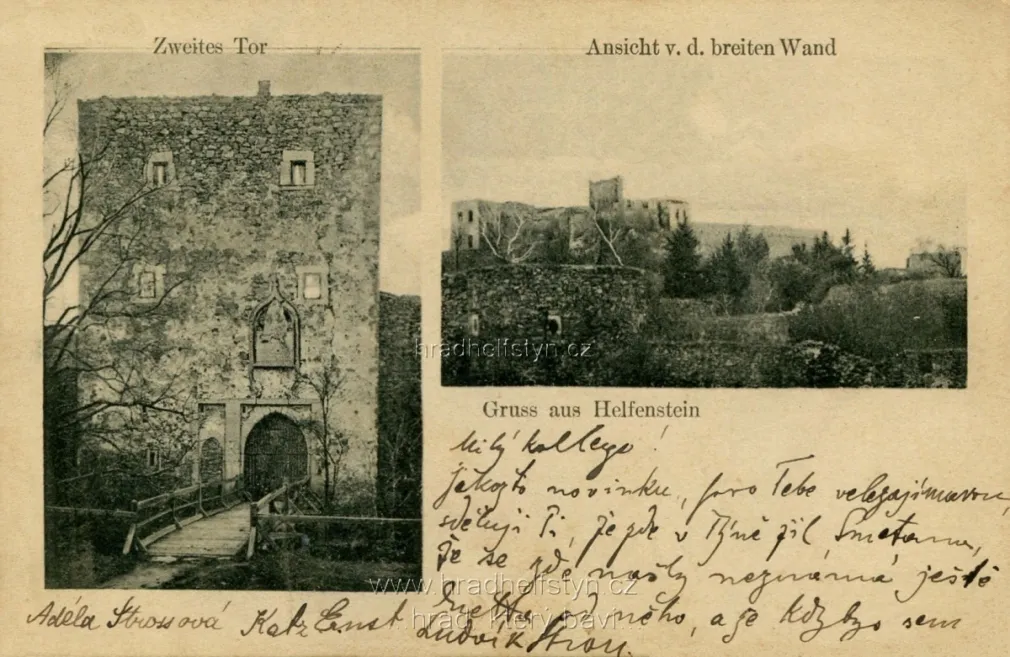 Zweites Tor
Ansicht v. d. breiten Wand
hradhelfstyn.cz
Gruss aus Helfenstein
Milý kollego!
Jakožto novinku, pro Tebe velezajímavou,
sděluji Ti, že zde v Týně žil Smetana,
že se zde našly neznámá ještě
od něho, a že kdyby sem
www.hradhelfstyn.cz
hrad, který baví
Adéla Strossová Katz Ernst Ludvík Stross.